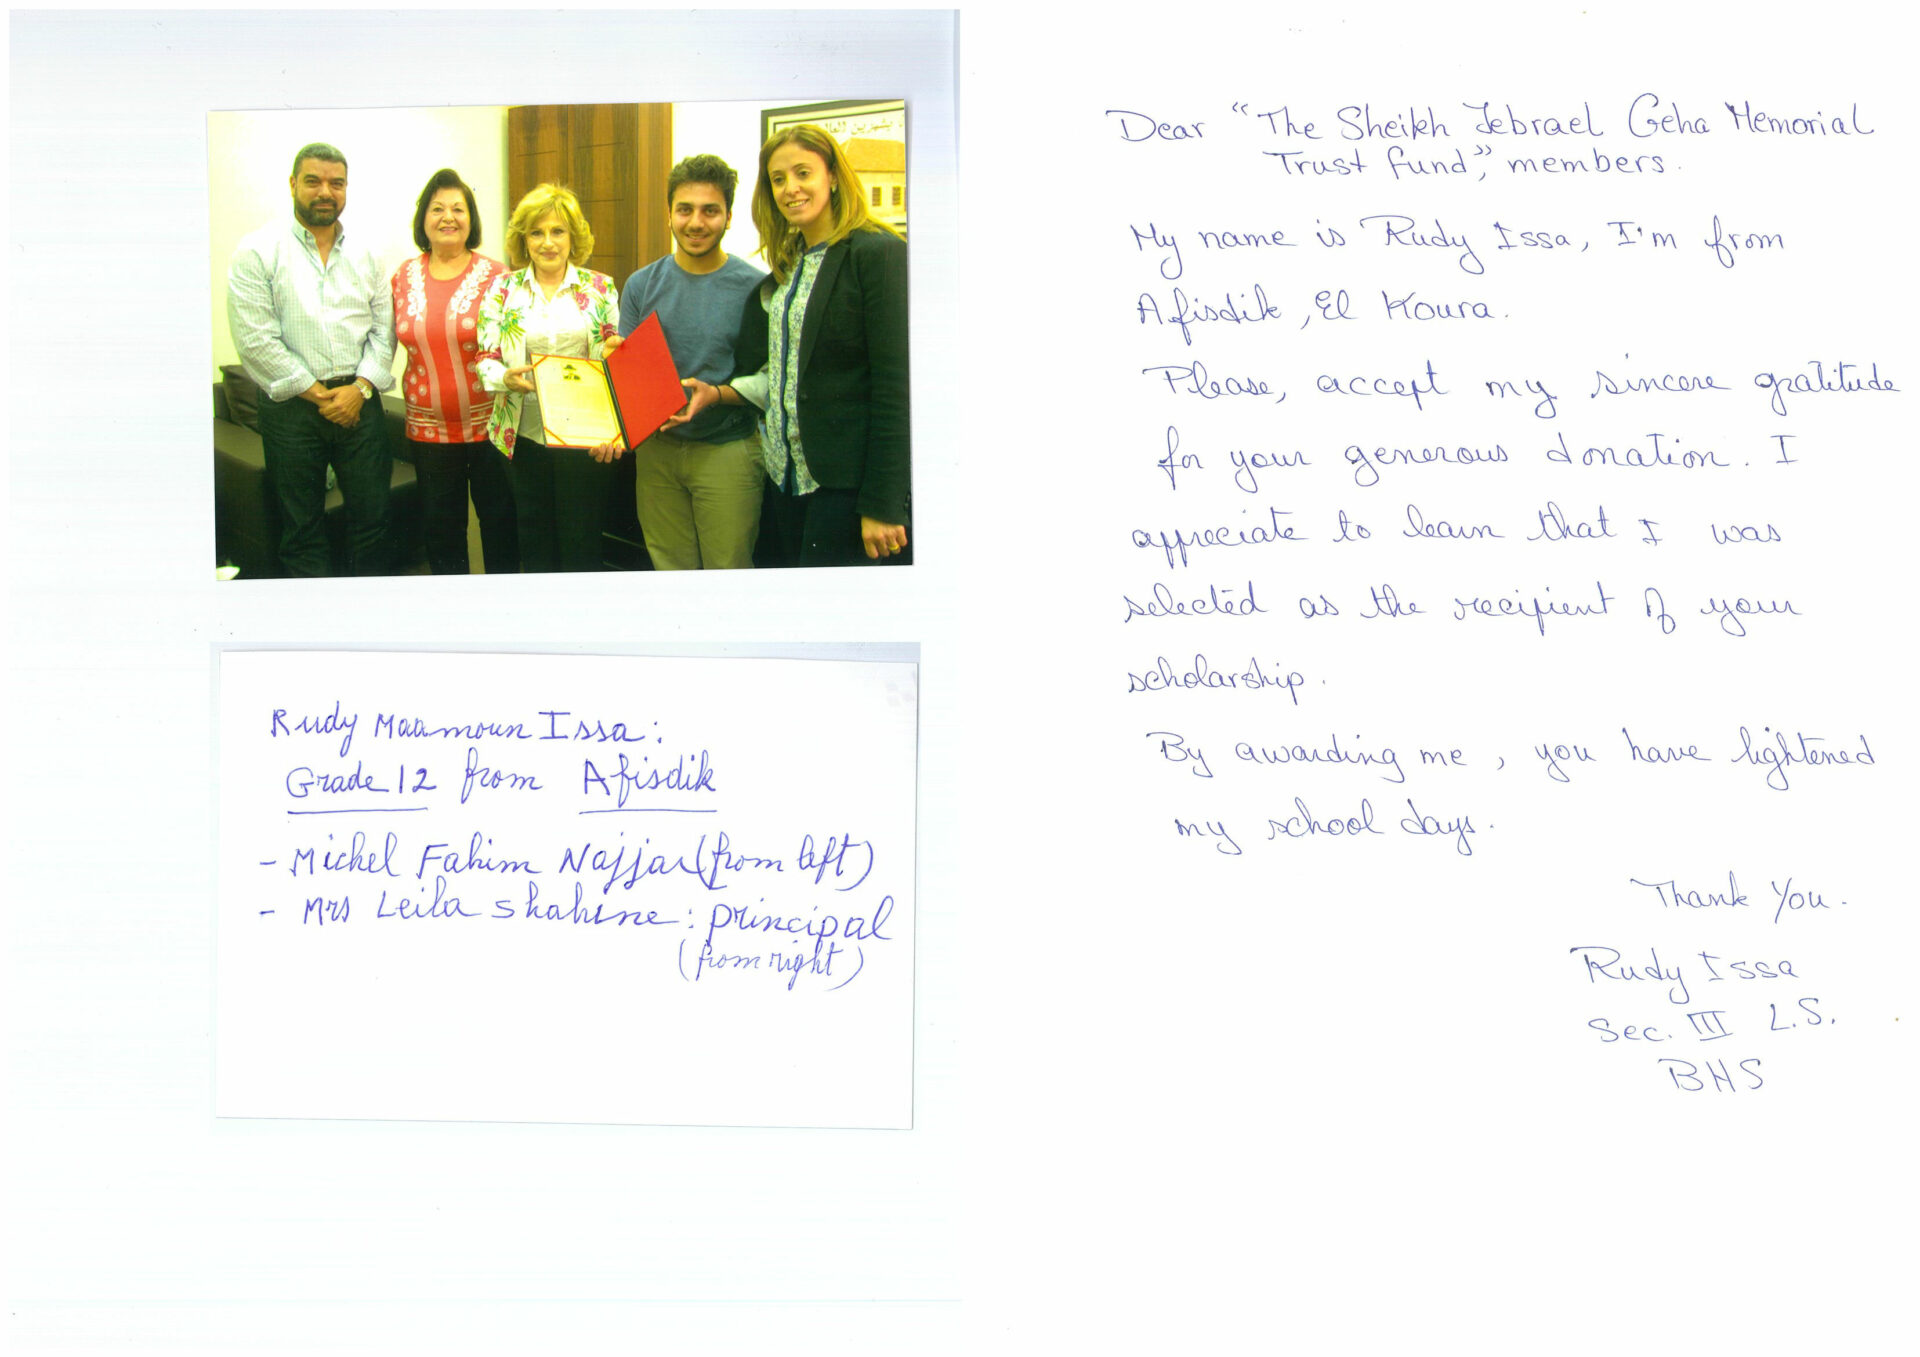 يشهرين العال
Rudy Maamoun Issa:
Grade 12 from Afisdik
- Michel Fahim Najjar (from left)
- Mrs Leila Shahine: principal
(from right)
Dear "The Sheikh Jebrael Geha Memorial
Trust fund", members.
My name is Rudy Issa, I'm from
Afisdik, El Koura.
Please, accept my sincere gratitude
for your generous donation. I
appreciate to learn that I was
selected as the recipient of your
scholarship.
By awarding me, you have lightened
my school days.
Thank You.
Rudy Issa
Sec. III L.S.
BHS